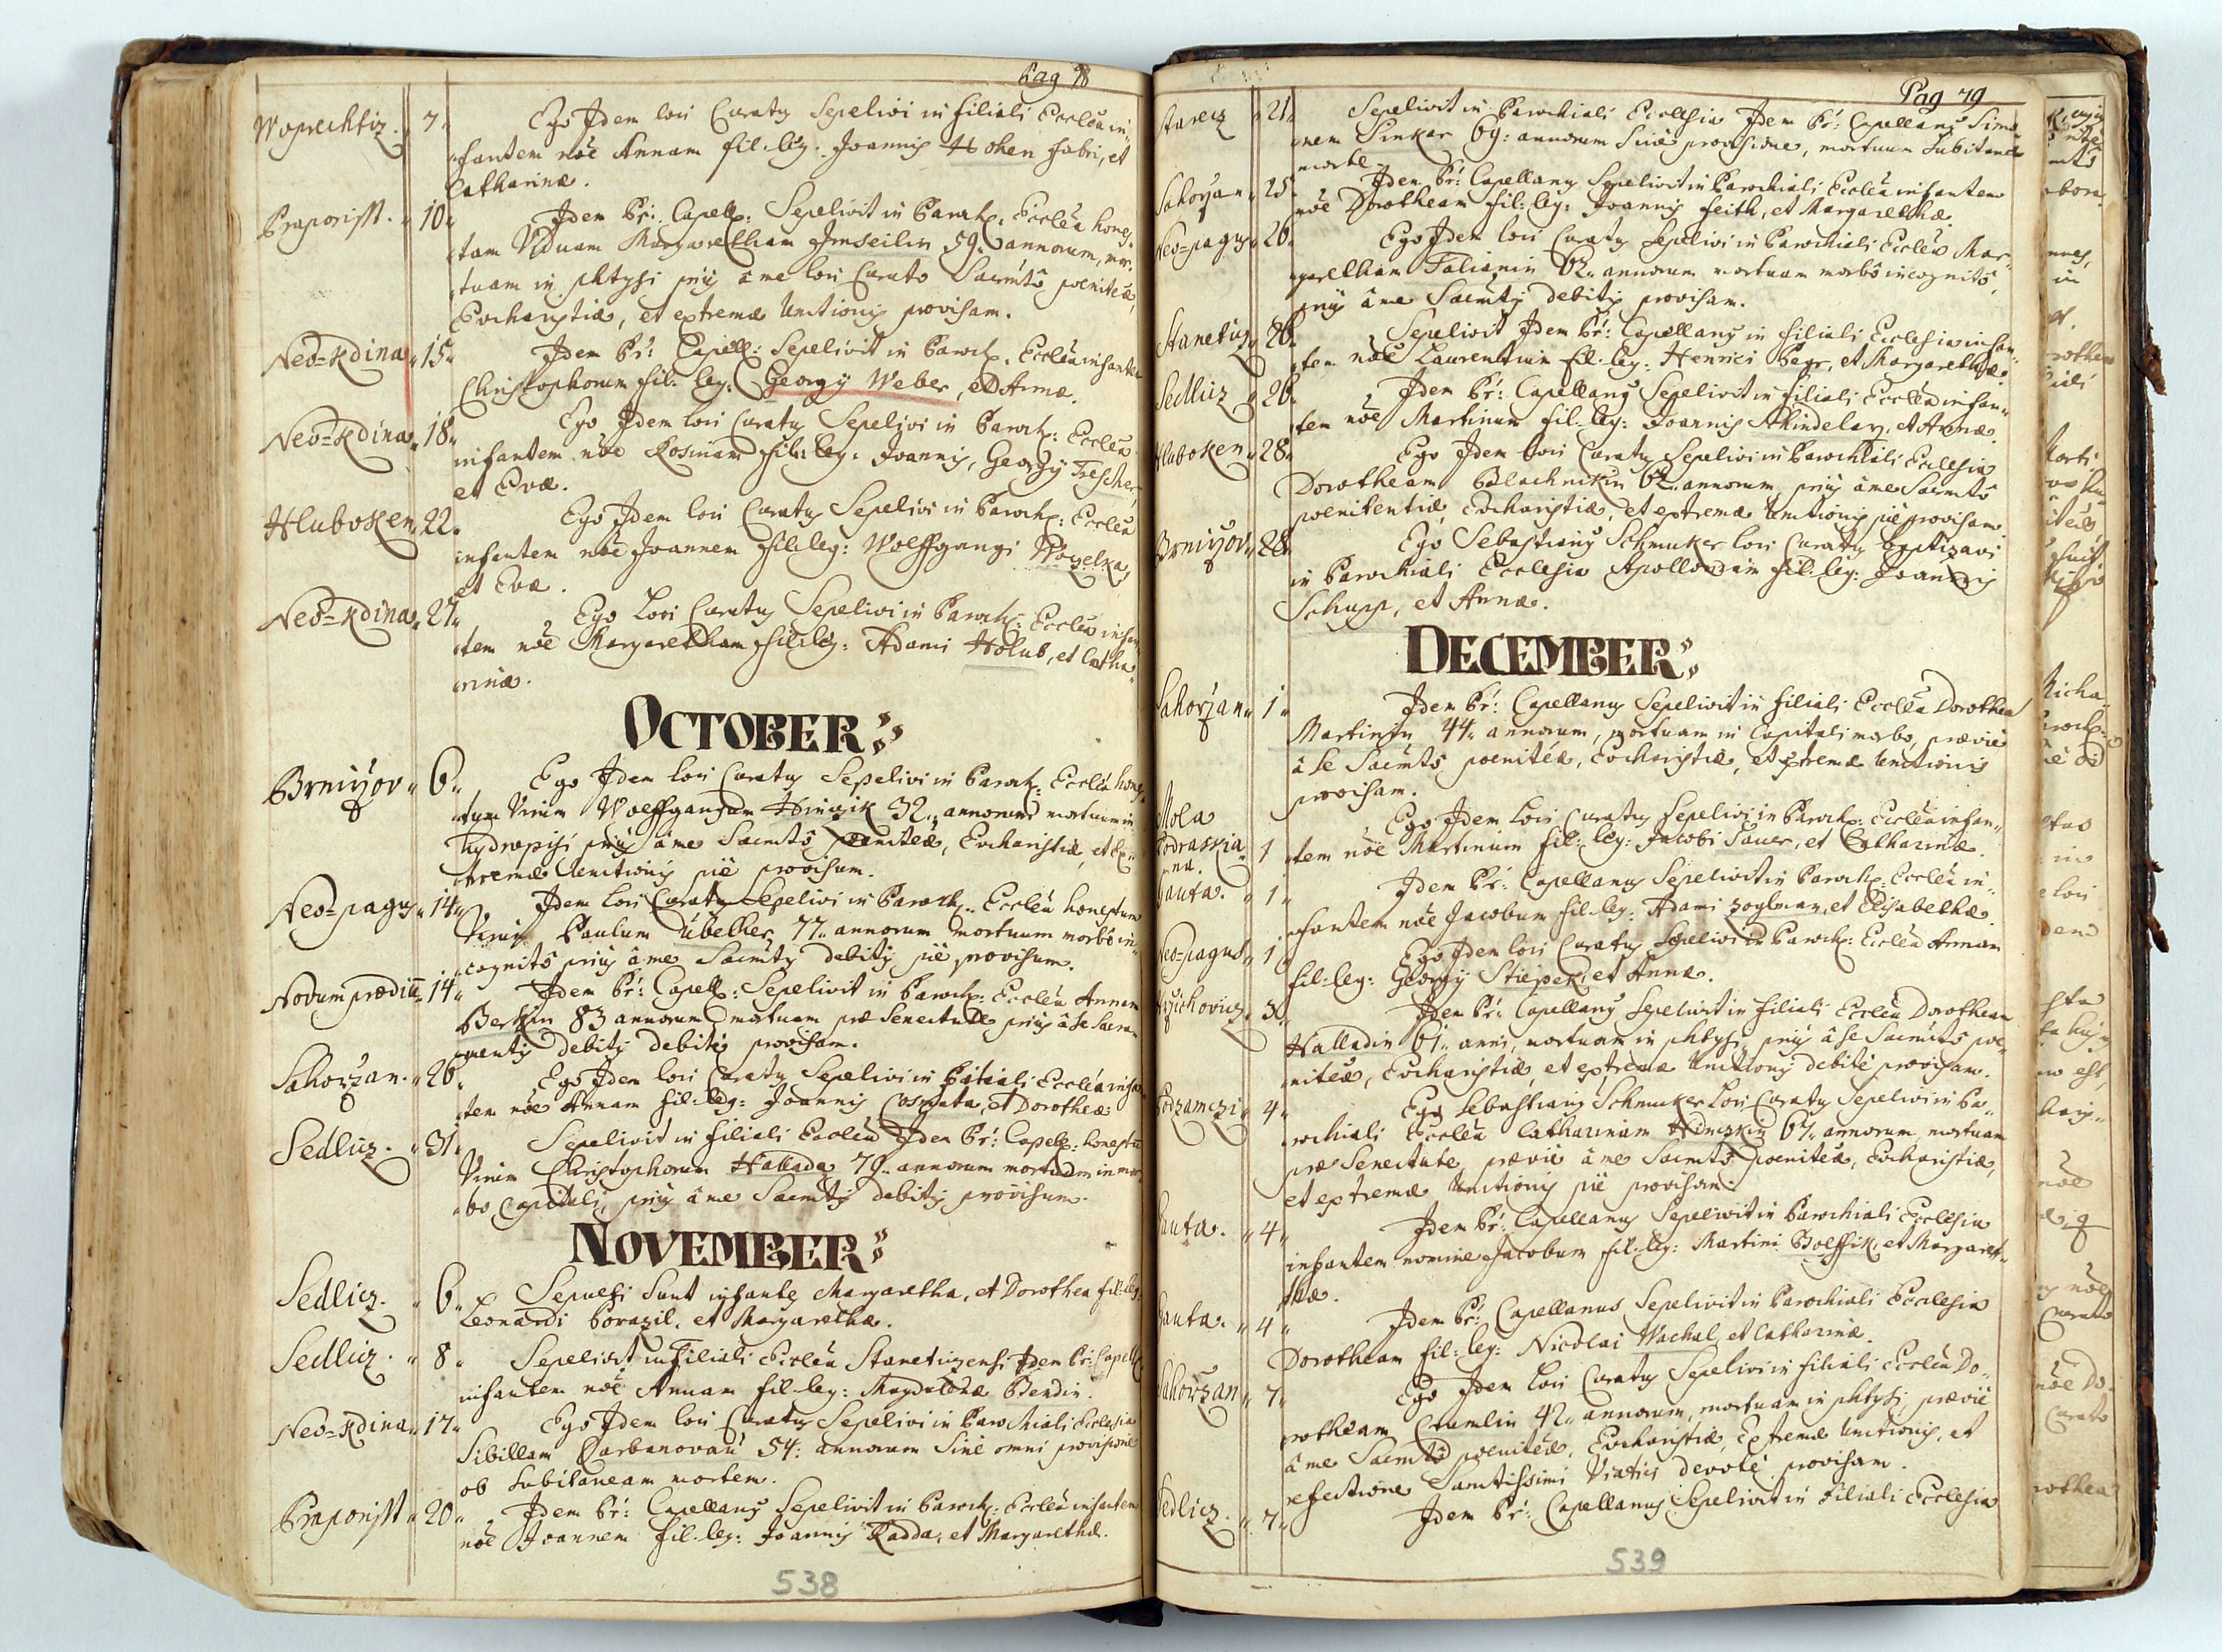 Pag 78
Woprechtiz. 7.
Ego Idem loci Curatus Sepelivi in filiali Eccleã in-
fantem nõe Annam fil: leg: Joannis Hohen fabri, et
Catharinæ.
Praporisst. 10.
Idem Pr: Capell: Sepelivit in Paroch: Eccleã hones-
tam Viduam Margaretham 59. annorum, mor-
tuam in phtysi priùs à me loci Curato Sacmtõ pœniteæ,
Eucharistiæ, et extremæ Unctionis provisam.
Neo=Kdina 15.
Idem Pr: Capell: Sepelivit in Paroch: Eccleã infantem
Christophorum fil: leg: Georgÿ Weber, et Annæ.
Neo=Kdina 18.
Ego Idem loci Curatus Sepelivi in Paroch: Eccleã
infantem nõe Rosinam fil: leg: Joannis, Georgÿ Trescher,
et Evæ.
Hluboken 22.
Ego Idem loci Curatus Sepelivi in Paroch: Eccleã
infantem nõe Joannem fil: leg: Wolffgangi
et Evæ.
Neo=Kdina 27.
Ego Loci Curatus Sepelivi in Paroch: Eccleã infan-
tem nõe Margaretham fil: leg: Adami Holub, et Catha-
rinæ.
OCTOBER:
Brnirzov 6.
Ego Idem loci Curatus Sepelivi in Paroch: Eccleã hones-
tum Virum Wolffgangum 32. annorum mortuum in
hydropisi priùs à me Sacmtõ pœniteæ, Eucharistiæ, et Ex-
tremæ Unctionis piè provisum.
Neo=pagus 14.
Idem loci Curatus Sepelivi in Paroch: Eccleã honestum
Virum Paulum übelher 77. annorum mortuum morbo in-
cognito priùs à me Sacmtis debitis piè provisum.
Novum prædiũ 14.
Idem Pr: Capell: Sepelivit in Paroch: Eccleã Annam
Berkin 83 annorum mortuam præ Senectute priùs à se Sacra-
mentis debitis debitè provisam.
Sahorzan. 26.
Ego Idem loci Curatus Sepelivi in filiali Eccleã infan-
tem nõe Annam fil: leg: Joannis et Dorotheæ
Sedlicz. 31.
Sepelivit in filiali Eccleã Idem Pr: Capell: honestum
Virum Christophorum Hallada 79. annorum mortuum in mor-
bo Capitali, priùs à me Sacmtis debitis provisum.
NOVEMBER:
Sedlicz. 6.
Sepulti Sunt infantes Margaretha, et Dorothea fil: leg:
Leonardi Porazil, et Margarethæ.
Sedlicz. 8.
Sepelivit in Filiali Eccleã Stanetizensi Idem Pr: Capell:
infantem nõe Annam fil: leg: Magdalenæ Bendin.
Neo=Kdina 17.
Ego Idem loci Curatus Sepelivi in Parochiali Ecclesia
Sibillam Carbanovan 54. annorum Sine omni provisione
ob Subitaneam mortem.
Praporisst 20.
Idem Pr: Capellanus Sepelivit in Paroch: Eccleã infantem
nõe Joannem fil: leg: Joannis Radda, et Margarethæ.
538
Pag 79
Starecz 21.
Sepelivit in Parochiali Ecclesia Idem Pr: Capellanus Simo-
nem Sinkar 69. annorum Sine provisione, mortuum Subitanea
morte.
Sahorzan 25.
Idem Pr: Capellanus Sepelivit in Parochiali Eccleã infantem
nõe Dorotheam fil: leg: Joannis Feith, et Margarethæ.
Neo=pagus 26.
Ego Idem loci Curatus Sepelivi in Parochiali Eccleã Mar-
garetham Talianin 62. annorum mortuam morbo incognito,
priùs à me Sacmtis debitis provisam.
Stanetiz 26.
Sepelivit Idem Pr: Capellanus in filiali Ecclesia infan-
tem nõe Laurentium fil: leg: Henrici et Margarethæ.
Sedlicz 26.
Idem Pr: Capellanus Sepelivit in filiali Eccleã infan-
tem nõe Martinum fil: leg: Joannis Schindelar, et Annæ.
Hluboken 28.
Ego Idem loci Curatus Sepelivi in Parochiali Ecclesia
Dorotheam Blachnikin 62. annorum priùs à me Sacmtõ
pœnitentiæ, Eucharistiæ, et extremæ Unctionis piè provisam.
Brnirzov 28.
Ego Sebastianus Schmuker loci Curatus baptizavi
in Parochiali Ecclesia Apolloniam fil: leg: Joannis
Schupp, et Annæ.
DECEMBER:
Sahorzan 1.
Idem Pr: Capellanus Sepelivit in filiali Eccleã Dorotheam
Martinin 44. annorum, mortuam in Capitali morbo, præviè
à se Sacmtõ pœniteæ, Eucharistiæ, et extremæ Unctionis
provisam.
Mola
Podrasskia-
na. 1
Ego Idem loci Curatus Sepelivi in Paroch: Eccleã infan-
tem nõe Martinum fil: leg: Jacobi Sauer, et Catharinæ.
hauta. 1
Idem Pr: Capellanus Sepelivit in Paroch: Eccleã in-
fantem nõe Jacobum fil: leg: Adami Zoglman, et Elisabethæ.
Neo=pagus 1
Ego Idem loci Curatus Sepelivi in Paroch: Eccleã Annam
fil: leg: Georgÿ Stiepek, et Annæ.
3.
Idem Pr: Capellanus Sepelivit in filiali Eccleã Dorotheam
Halladin 61. anni, mortuam in phtysi priùs à se Sacmtõ pœ-
niteæ, Eucharistiæ, et extremæ Unctionis debitè provisam.
Podzamczi 4.
Ego Sebastianus Schmuker Loci Curatus Sepelivi in Pa-
rochiali Eccleã Catharinam 67. annorum, mortuam
præ Senectute, præviè à me Sacmtõ pœniteæ, Eucharistiæ,
et extremæ Unctionis piè provisam.
hauta. 4.
Idem Pr: Capellanus Sepelivit in Parochiali Ecclesia
infantem nomine Jacobum fil: leg: Martini Bolffik, et Margare-
thæ.
hauta. 4
Idem Pr: Capellanus Sepelivit in Parochiali Ecclesia
Dorotheam fil: leg: Nicolai Wachal, et Catharinæ.
Sahorzan 7.
Ego Idem Loci Curatus Sepelivi in filiali Eccleã Do-
rotheam Crumlin 42. annorum, mortuam in phtysi, præviè
à me Sacmtõ pœniteæ, Eucharistiæ, Extremæ Unctionis, et
refectione Sanctissimi Viatici devotè provisam.
Sedlicz. 7.
Idem Pr: Capellanus Sepelivit in Filiali Ecclesia
539